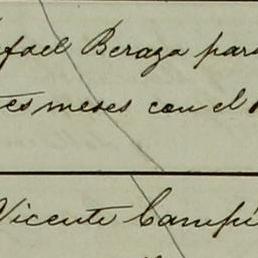 fael Beraza para
tes meses con el
Vicente Campi